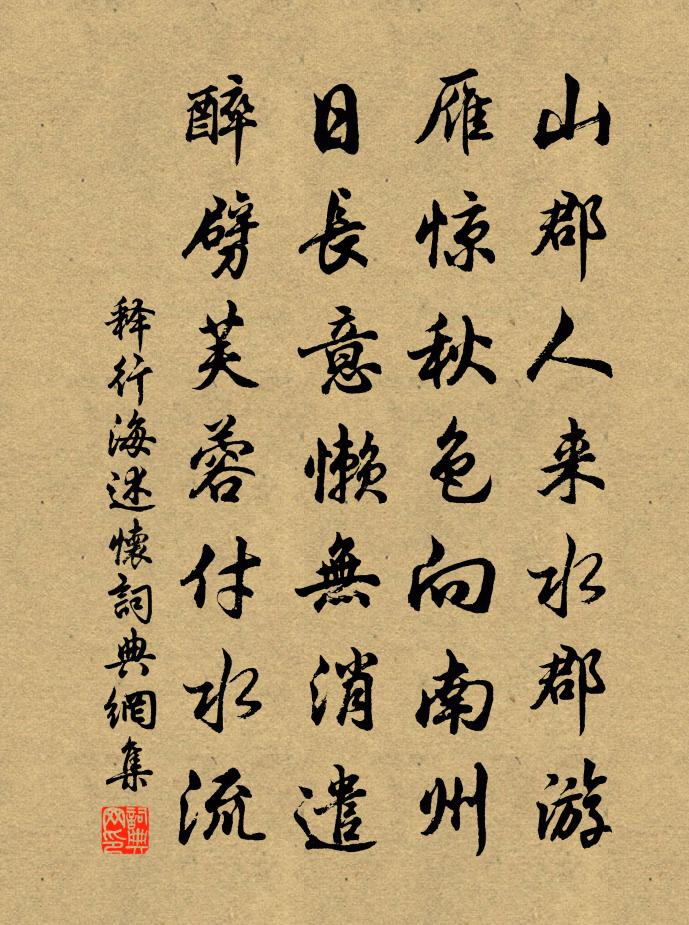 山郡人来水郡游
雁惊秋色向南州
日長意懒無消遣
醉劈芙蓉付水流
释行海述懷詞典網集
詞典網印